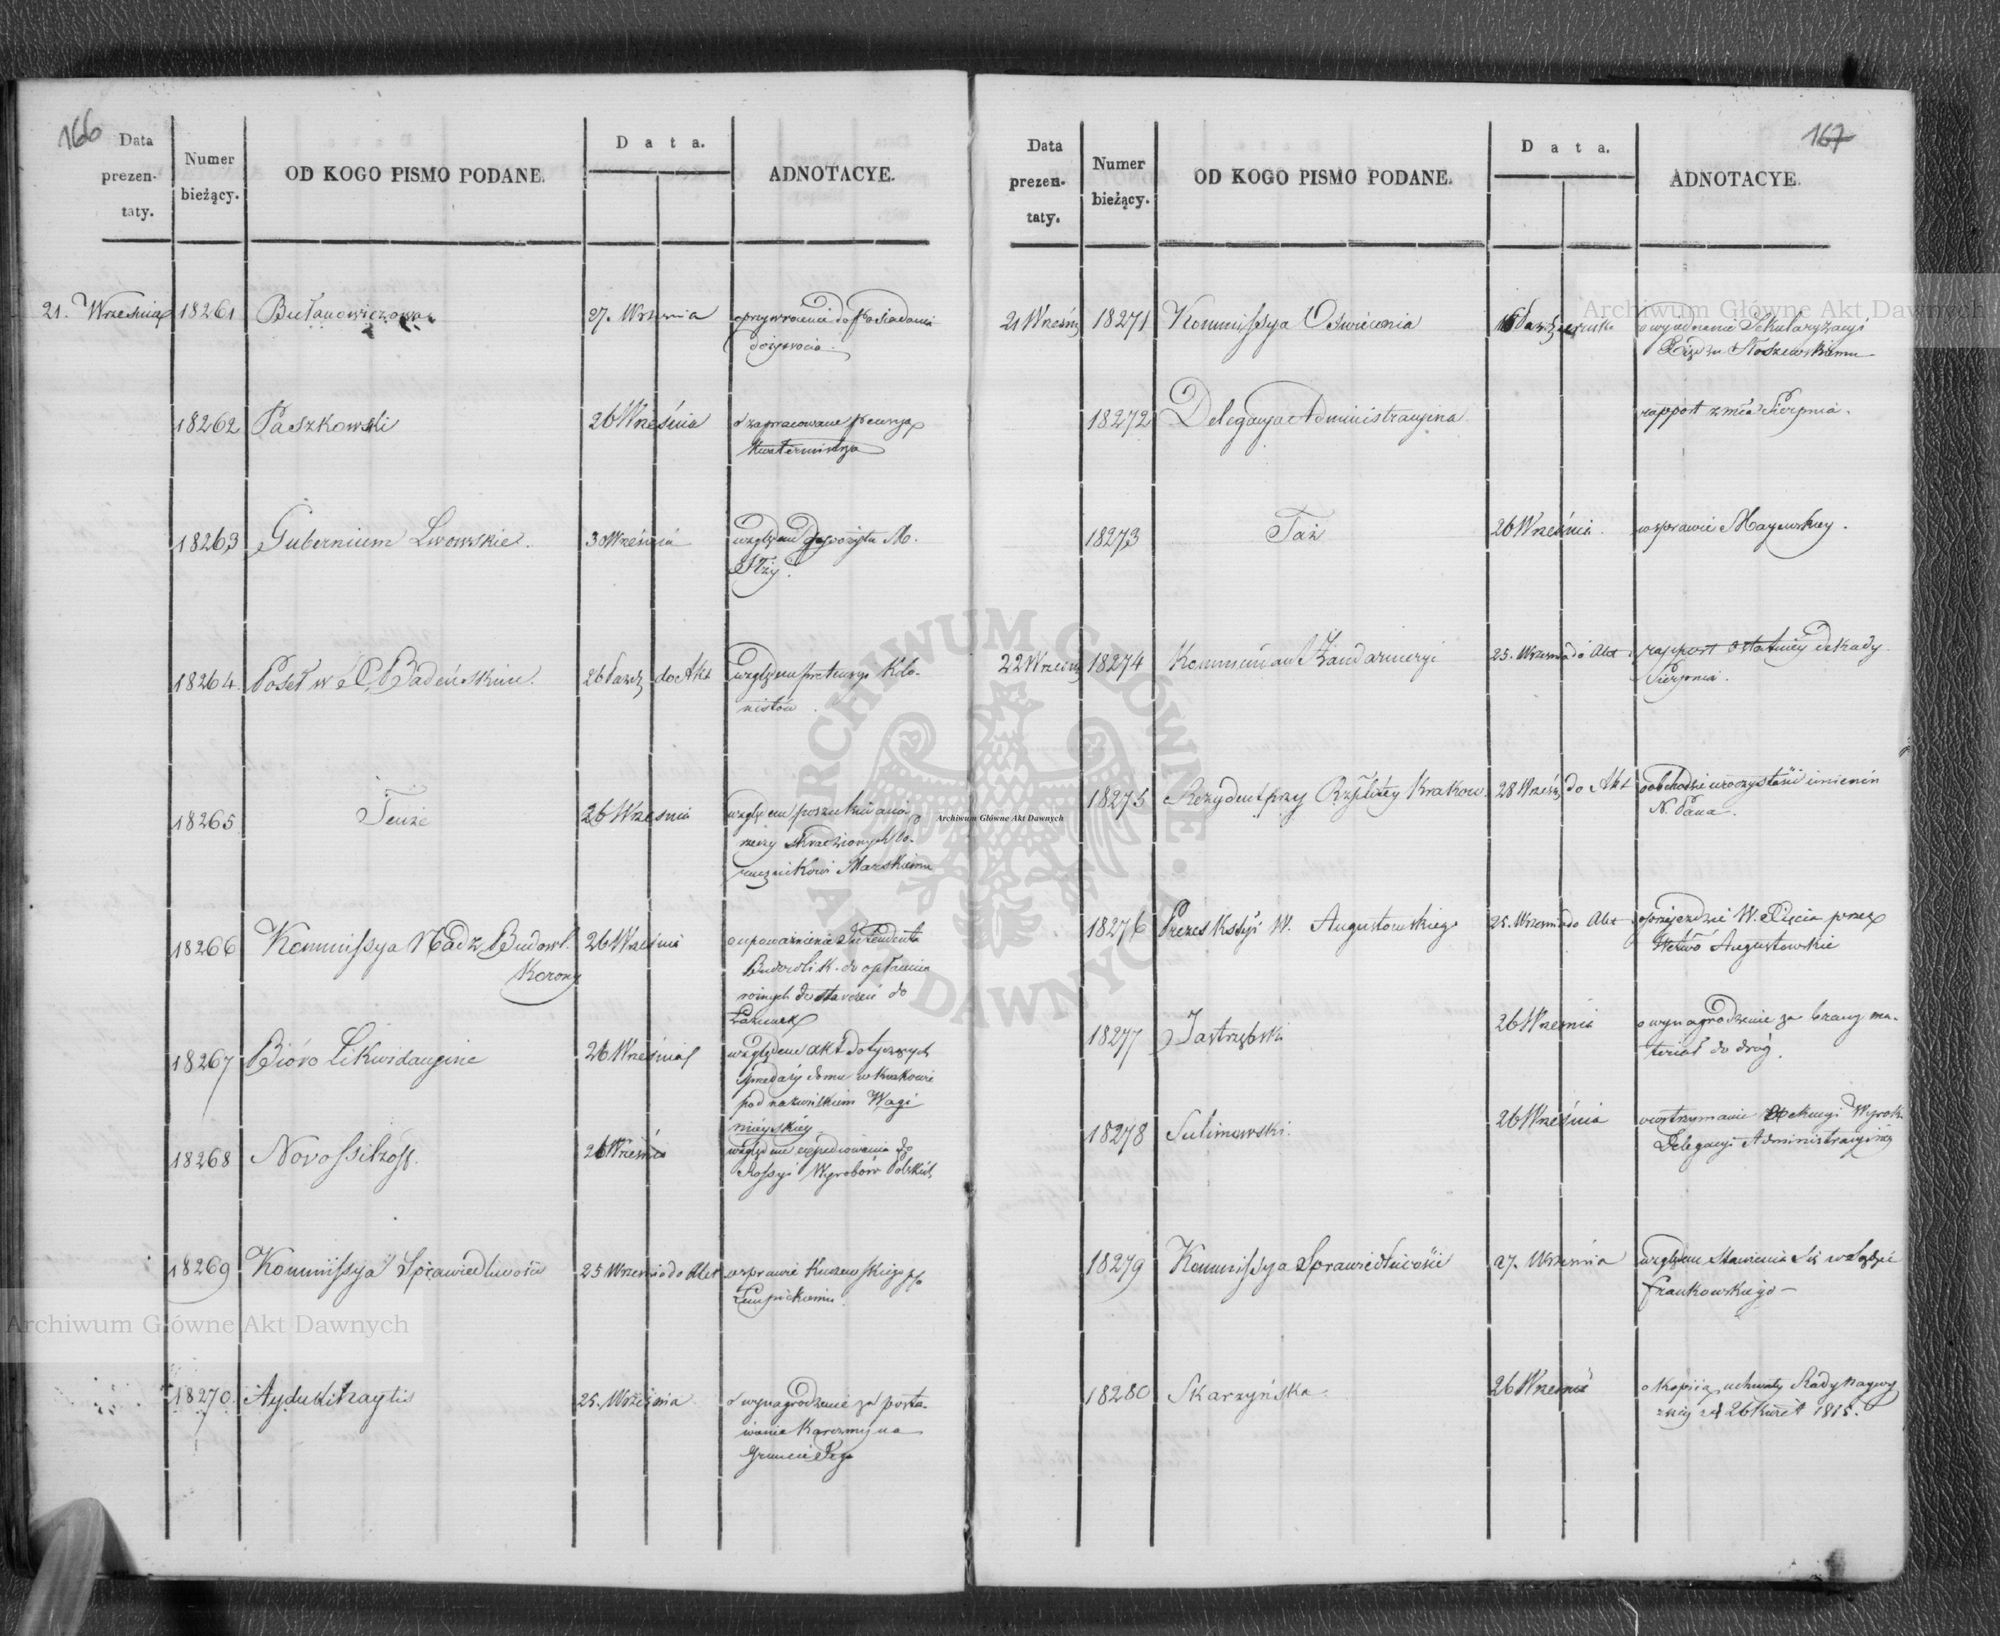 166
Data
prezen-
taty.
Numer
bieżący.
OD KOGO PISMO PODANE.
Data.
ADNOTACYE.
21. Września 18261 Bułanowiczowa 27. Września o przywrócenie do posiadania
dożywocia.
18262 Paszkowski 26 Września
Kwatermistrza
18263 Gubernium Lwowskie. 30 Września względem M.
18264 Poseł w Badeńskim. 26 Paźdz do Akt względem pretensyi Kolo-
nistów.
18265 Tenże 26 Września względem poszukiwania
rzeczy skradzionych Po-
rucznikowi Marskiemu
18266 Kommissya Nadz Budowl. 26 Września o upoważnienie Intendenta
Korony Budowli K. do opłacenia
różnych dostarczeń do
Łazienek
18267 Bióro Likwidacyine 26 Września względem akt dotyczących
sprzedaży domu w Krakowie
pod nazwiskiem Wagi
mieyskiey
18268 Novossilzoff. 26 Września względem expediowania do
Rossyi Wyrobów Polskich
18269 Kommissya Sprawiedliwości 25 Września do Akt w sprawie Kuszewskiego
Łempickiemu.
18270 Aydukitraytis 25. Września o wynagrodzenie za posta-
wienie Karczmy na
Gruncie
167
Data
prezen-
taty.
Numer
bieżący.
OD KOGO PISMO PODANE.
Data.
ADNOTACYE.
21 Wrześn 18271 Kommissya Oświecenia 16 Października o wyiednanie Sekularyzacyi
Xiędzu Koszewskiemu
18272 Delegacya Administracyina rapport z mca Sierpnia.
18273 Taż 26 Września. w sprawie Mayewskiey.
22 Wrześn 18274 Kommendant Żandarmeryi 25. Września do Akt rapport ostatniéy dekady
Sierpnia.
18275 Rezydent przy Rzpltéy Krakow. 28 Wrześ do Akt o obchodzie uroczystości imienin
N. Pana.
18276 Prezes Kssyi W. Augustowskiego 25. Września do Akt o przejezdzie W. Xięcia przez
Wdztwo Augustowskie
18277 Jastrzębski 26 Września o wynagrodzenie za brany ma-
teriał do dróg.
18278 Sulimowski. 26 Września o wstrzymanie Exekucyi Wyroku
Delegacyi Administracyiney
18279 Kommissya Sprawiedliwości 27. Września względem Stawienia Się w Sądzie
Frankowskiego —
18280 Skarzyńska 26 Września o Kopiią uchwały Rady Naywy
zszéy z d 26 Kwiet 1815.
Archiwum Główne Akt Dawnych
Archiwum Główne Akt Dawnych
Archiwum Główne Akt Dawnych
ARCHIWUM GŁÓWNE AKT DAWNYCH